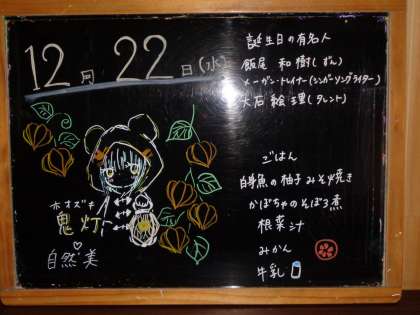 12月 22日(水)
誕生日の有名人
飯尾 和樹(ずん)
メーガン・トレイナー(シンガーソングライター)
大石 絵理(タレント)
ごはん
白身魚の柚子みそ焼き
かぼちゃのそぼろ煮
根菜汁
みかん
牛乳
ホオズキ
鬼灯
自然美